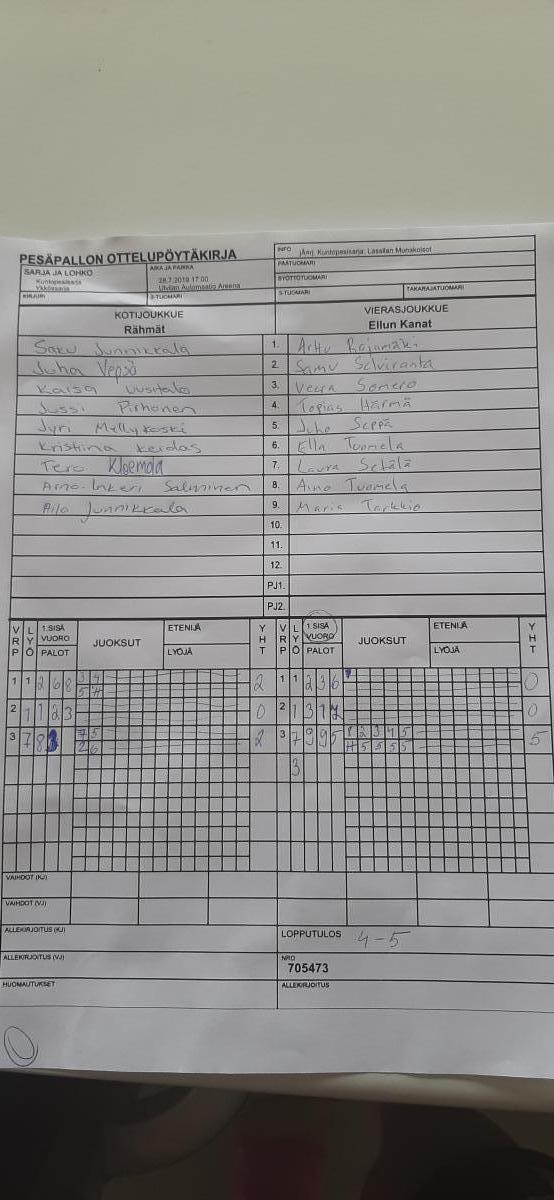 PESÄPALLON OTTELUPÖYTÄKIRJA
INFO jÄrrj. Kuntopesisarja: Lassilan Munakoisot
SARJA JA LOHKO
Kuntopesisarja
Ykkössarja
AIKA JA PAIKKA
28.7.2019 17:00
Utvilan Automaatio Areena
PÄÄTUOMARI
SYÖTTÖTUOMARI
KIRJURI
2-TUOMARI
3-TUOMARI
TAKARAJATUOMARI
KOTIJOUKKUE
Rähmät
VIERASJOUKKUE
Ellun Kanat
Saku Junnikkala 1. Arttu Rajamäki
Juha Vepsä 2. Samu Selviranta
Kaisa Uusitalo 3. Veera Somero
Jussi Pirhonen 4. Topias Härmä
Jyri Myllykoski 5. Juho Seppä
Kristiina Keidas 6. Ella Tuomela
Tero 7. Laura Setälä
Aino-Inkeri Salminen 8. Aino Tuomela
Ailo Junnikkala 9. Maria Tarkkio
10.
11.
12.
PJ1.
PJ2.
VRP LYÖ 1.SISÄ VUORO PALOT JUOKSUT ETENIJÄ LYÖJÄ YHT VRP LYÖ 1.SISÄ VUORO PALOT JUOKSUT ETENIJÄ LYÖJÄ YHT
1 1 2 6 8 3 4 2 1 1 2 3 6 0
5 H
2 1 1 2 3 0 2 1 3 1 0
3 7 8 7 5 2 3 7 9 9 5 1 2 3 4 5 5
2 6 H 5 5 5 5
3
VAIHDOT (KJ)
VAIHDOT (VJ)
ALLEKIRJOITUS (KJ)
LOPPUTULOS 4-5
ALLEKIRJOITUS (VJ)
NRO
705473
HUOMAUTUKSET
ALLEKIRJOITUS